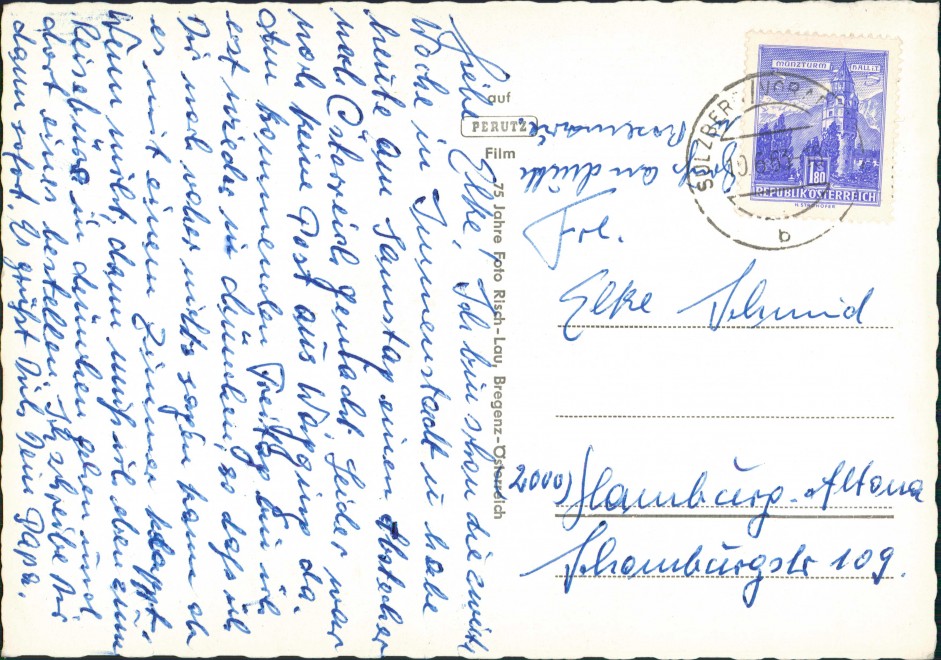 Liebe Elke, Ich bin schon die zweite
Woche in Immenstadt u habe
heute am Samstag einen Abstecher
nach Österreich gemacht. Leider war
noch keine Post aus Wigging da.
Am kommenden Freitag bin ich
erst wieder in München, so dass ich
Dir noch vorher nichts sagen kann ob
es mit einem Zimmer klappt.
Wenn nicht, dann muss ich eben zum
Reisebüro in München gehen und
dort eines bestellen. Ich schreibe Dir
dann sofort. Es grüßt Dich, Dein Papa.
auf
PERUTZ
Film
75 Jahre Foto Risch-Lau, Bregenz-Österreich
Gruß an
Rosemarie
MÜNZTURM HALL i.T.
1.80
REPUBLIK ÖSTERREICH
SULZBERG VORARLB
b
Frl.
Elke Schmid
2000) Hamburg-Altona
Schomburgstr 109.